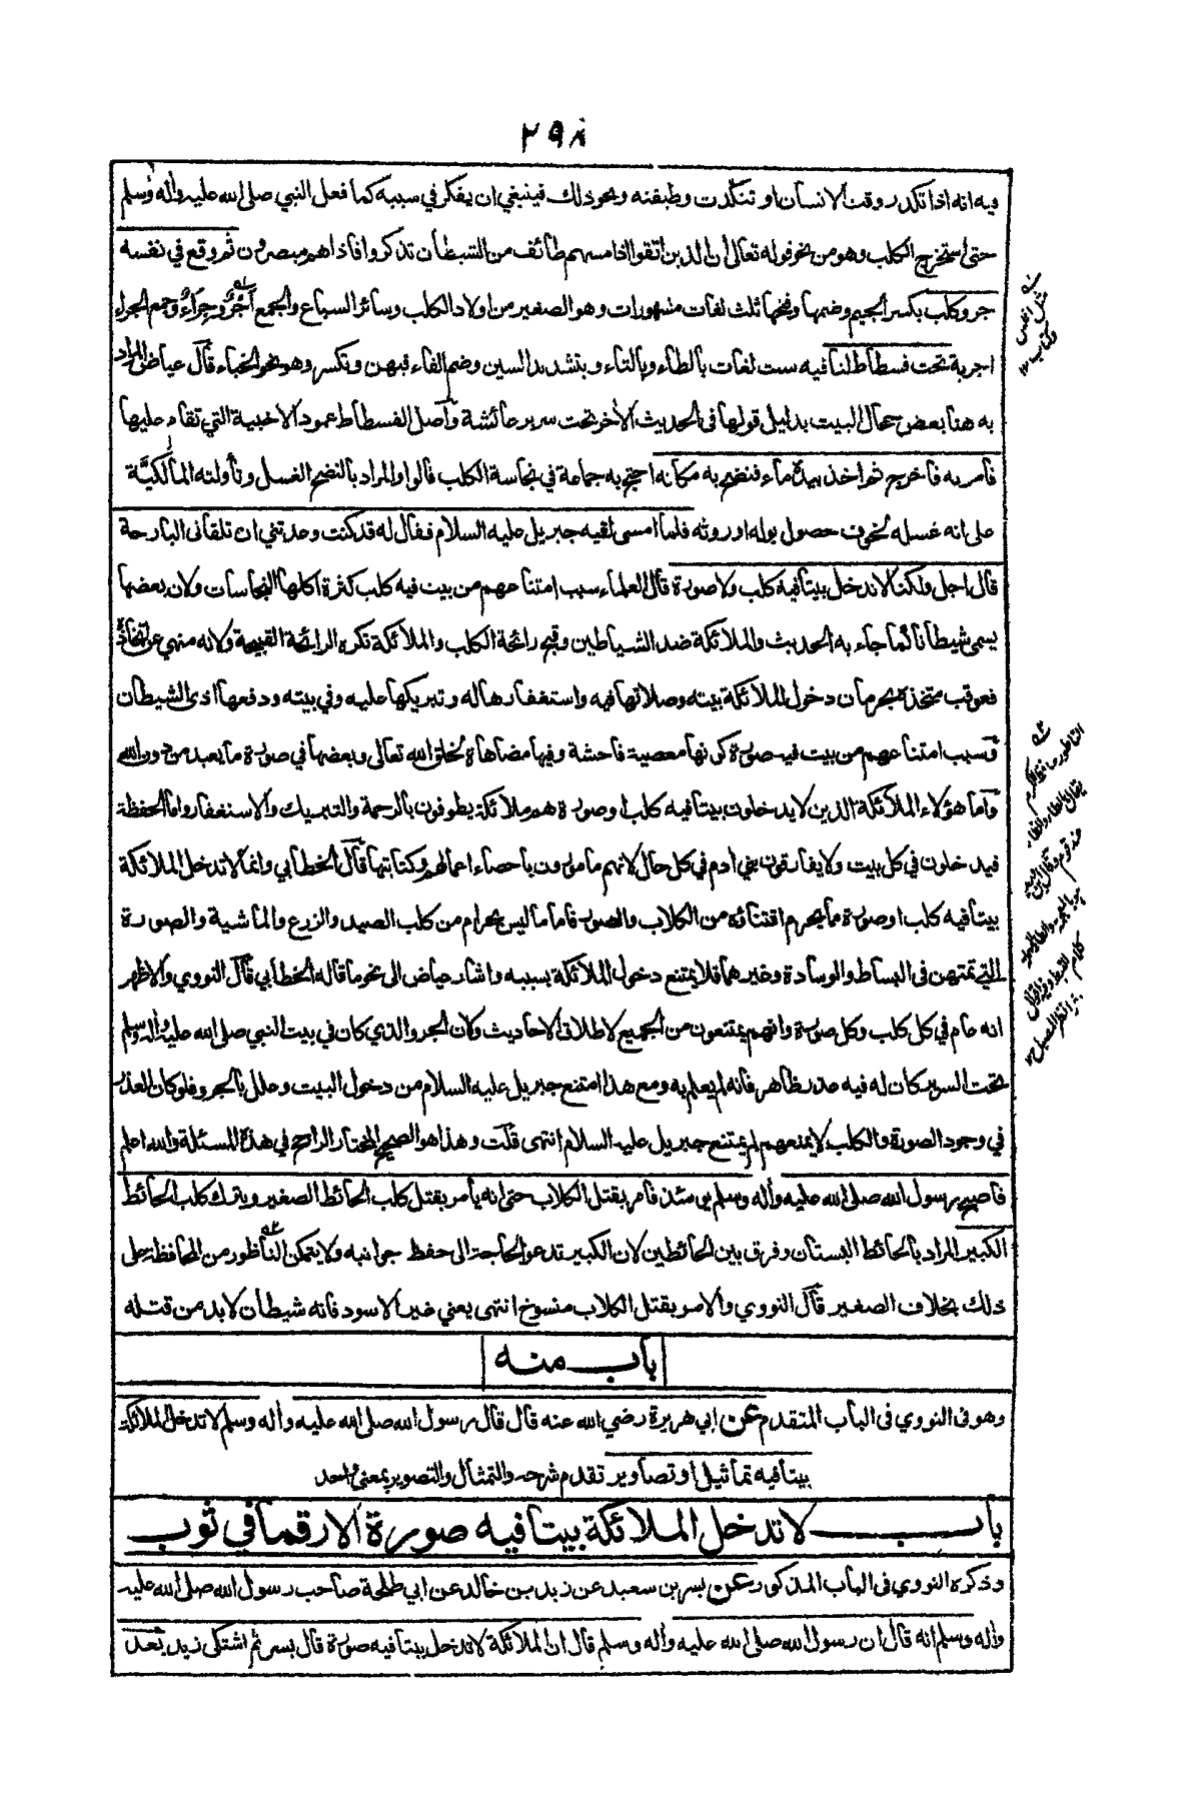 ٢٩٨
فيه انه اذا تكدر وقت الانسان او تنكدت وظيفته ونحو ذلك فينبغي ان يفكر في سببه كما فعل النبي صلى الله عليه وأله وسلم
حتى استخرج الكلب وهو من نحو قوله تعالى ان الذين اتقوا اذا مسهم طائف من الشيطان تذكروا فاذا هم مبصرون ثم وقع في نفسه
جرو كلب بكسر الجيم وضمها وفتحها ثلث لغات مشهورات وهو الصغير من اولاد الكلب وسائر السباع والجمع أَجْرٍ وجِرَاءٌ وجمع الجراء
اجرية تحت فسطاط لنا فيه ست لغات بالطاء وبالتاء وبتشديد السين وضم الفاء فيهن وتكسر وهو نحو الخباء قال عياض المراد
به هنا بعض حجال البيت بدليل قولها في الحديث الأخر تحت سرير عائشة وأصل الفسطاط عمود الاخبية التي تقام عليها
فامر به فأخرج ثم اخذ بيده ماء فنضح به مكانه احتج به جماعة في نجاسة الكلب قالوا والمراد بالنضح الغسل وتأولته المالكيَّة
على انه غسله لخوف حصول بوله او روثه فلما امسى لقيه جبريل عليه السلام فقال له قد كنت وعدتني ان تلقاني البارحة
قال اجل ولكنا لا ندخل بيتا فيه كلب ولا صورة قال العلماء سبب امتناعهم من بيت فيه كلب كثرة اكلها النجاسات ولان بعضها
يسمى شيطانا كما جاء به الحديث والملائكة ضد الشياطين وقبح رائحة الكلب والملائكة تكره الرائحة القبيحة ولانه منهي عن اتخاذه
فعوقب متخذه بحرمان دخول الملائكة بيته وصلاتها فيه واستغفارها له وتبريكها عليه وفي بيته ودفعها اذى الشيطان
وسبب امتناعهم من بيت فيه صورة كونها معصية فاحشة وفيها مضاهاة لخلق الله تعالى وبعضها في صورة ما يعبد من دون الله
وأما هؤلاء الملائكة الذين لا يدخلون بيتا فيه كلب او صورة هم ملائكة يطوفون بالرحمة والتبريك والاستغفار واما الحفظة
فيدخلون في كل بيت ولا يفارقون بني ادم في كل حال لانهم مامورون باحصاء اعمالهم وكتابتها قال الخطابي وانما لا تدخل الملائكة
بيتا فيه كلب او صورة مما يحرم اقتنائه من الكلاب والصور فاما ما ليس بحرام من كلب الصيد والزرع والماشية والصورة
التي تمتهن في البساط والوسادة وغيرهما فلا يمتنع دخول الملائكة بسببه واشار عياض الى نحو ما قاله الخطابي قال النووي والاظهر
انه عام في كل كلب وكل صورة وانهم يمتنعون من الجميع لاطلاق الاحاديث وكان الجرو الذي كان في بيت النبي صلى الله عليه وأله وسلم
تحت السرير كان له فيه عذر ظاهر فانه لم يعلم به ومع هذا امتنع جبريل عليه السلام من دخول البيت وعلل بالجرو فلو كان العذر
في وجود الصورة والكلب لا يمنعهم لم يمتنع جبريل عليه السلام انتهى قلت وهذا هو الصحيح المختار الراجح في هذه المسئلة والله اعلم
فاصبح رسول الله صلى الله عليه وأله وسلم يومئذ فامر بقتل الكلاب حتى انه يأمر بقتل كلب الحائط الصغير ويترك كلب الحائط
الكبير المراد بالحائط البستان وفرق بين الحائطين لان الكبير تدعو الحاجة الى حفظ جوانبه ولا يتمكن الناظور من المحافظة على
ذلك بخلاف الصغير قال النووي والامر بقتل الكلاب منسوخ انتهى يعني غير الاسود فانه شيطان لابد من قتله
باب منه
وهو في النووي في الباب المتقدم عن ابي هريرة رضي الله عنه قال قال رسول الله صلى الله عليه وأله وسلم لا تدخل الملائكة
بيتا فيه تماثيل او تصاوير تقدم شرحه والتمثال والتصوير بمعنى واحد
باب لا تدخل الملائكة بيتا فيه صورة الا رقما في ثوب
وذكره النووي في الباب المذكور عن بسر بن سعيد عن زيد بن خالد عن ابي طلحة صاحب رسول الله صلى الله عليه
وأله وسلم انه قال ان رسول الله صلى الله عليه وأله وسلم قال ان الملائكة لا تدخل بيتا فيه صورة قال بسر ثم اشتكى زيد بعد